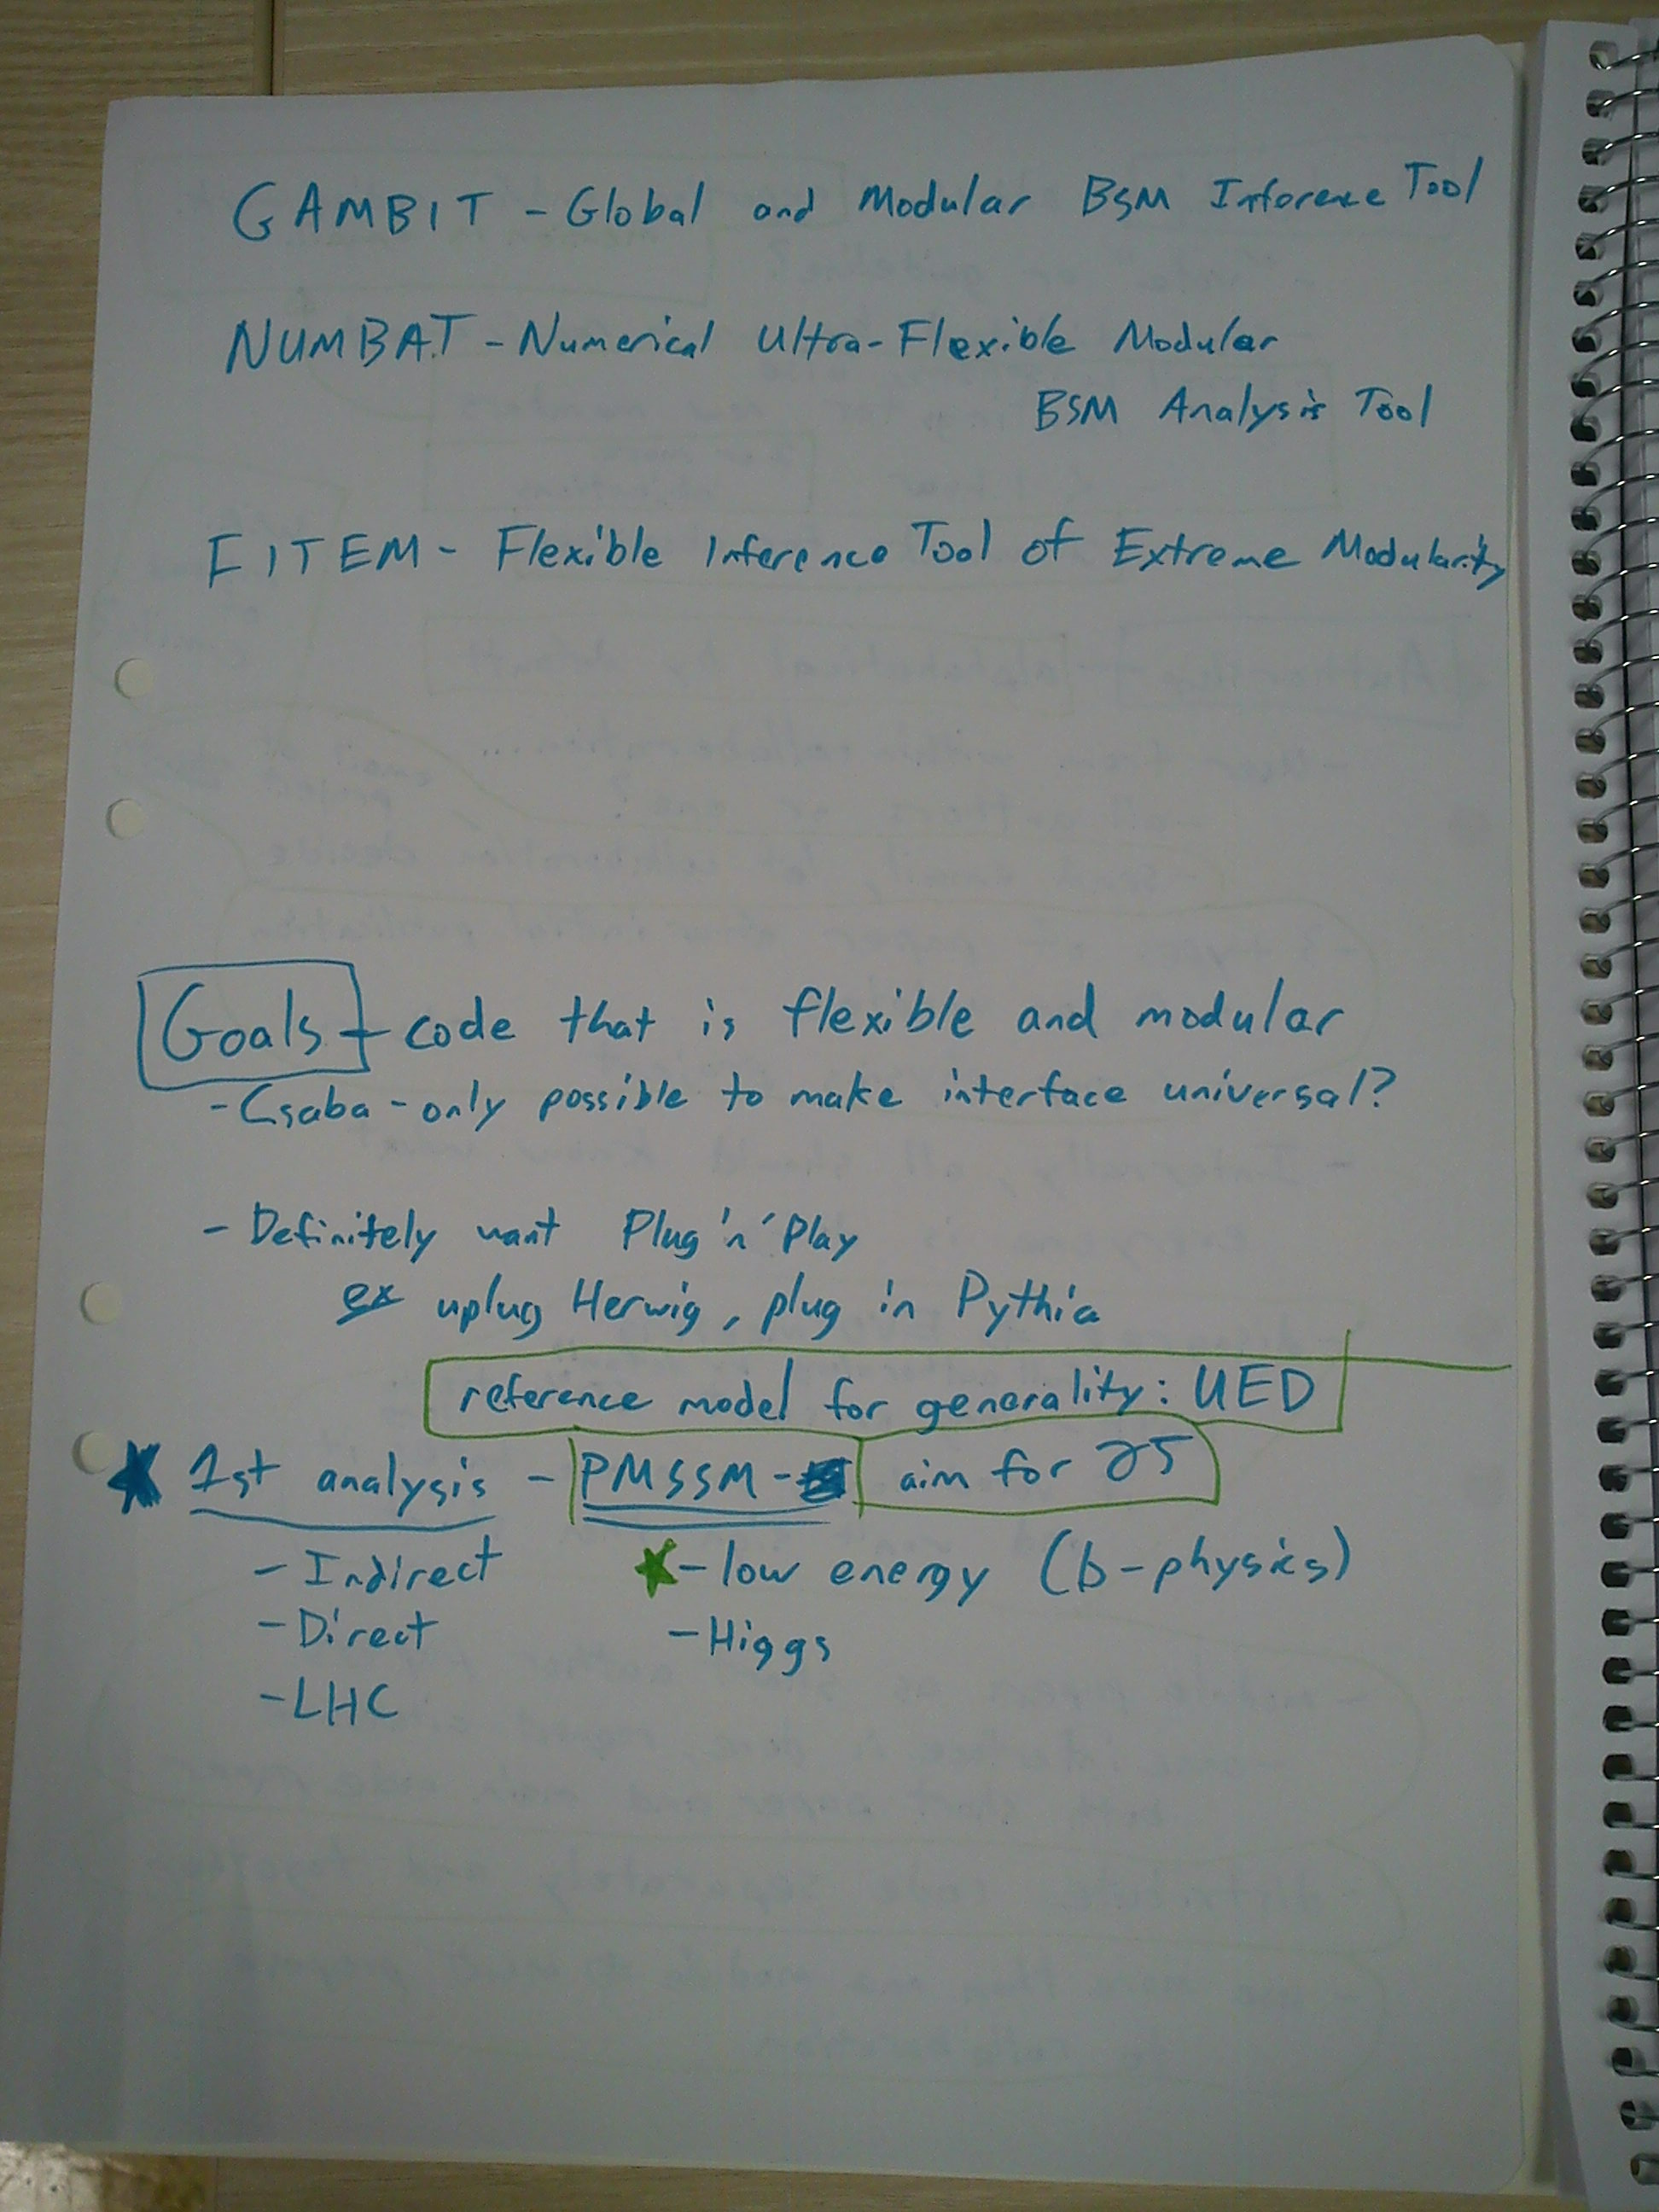 GAMBIT - Global and Modular BSM Inference Tool
NUMBAT - Numerical Ultra-Flexible Modular
BSM Analysis Tool
FITEM - Flexible Inference Tool of Extreme Modularity
Goals - code that is flexible and modular
- Csaba - only possible to make interface universal?
- Definitely want Plug 'n' Play
ex uplug Herwig, plug in Pythia
reference model for generality: UED
1st analysis - PMSSM - aim for 25
- Indirect - low energy (b-physics)
- Direct - Higgs
- LHC